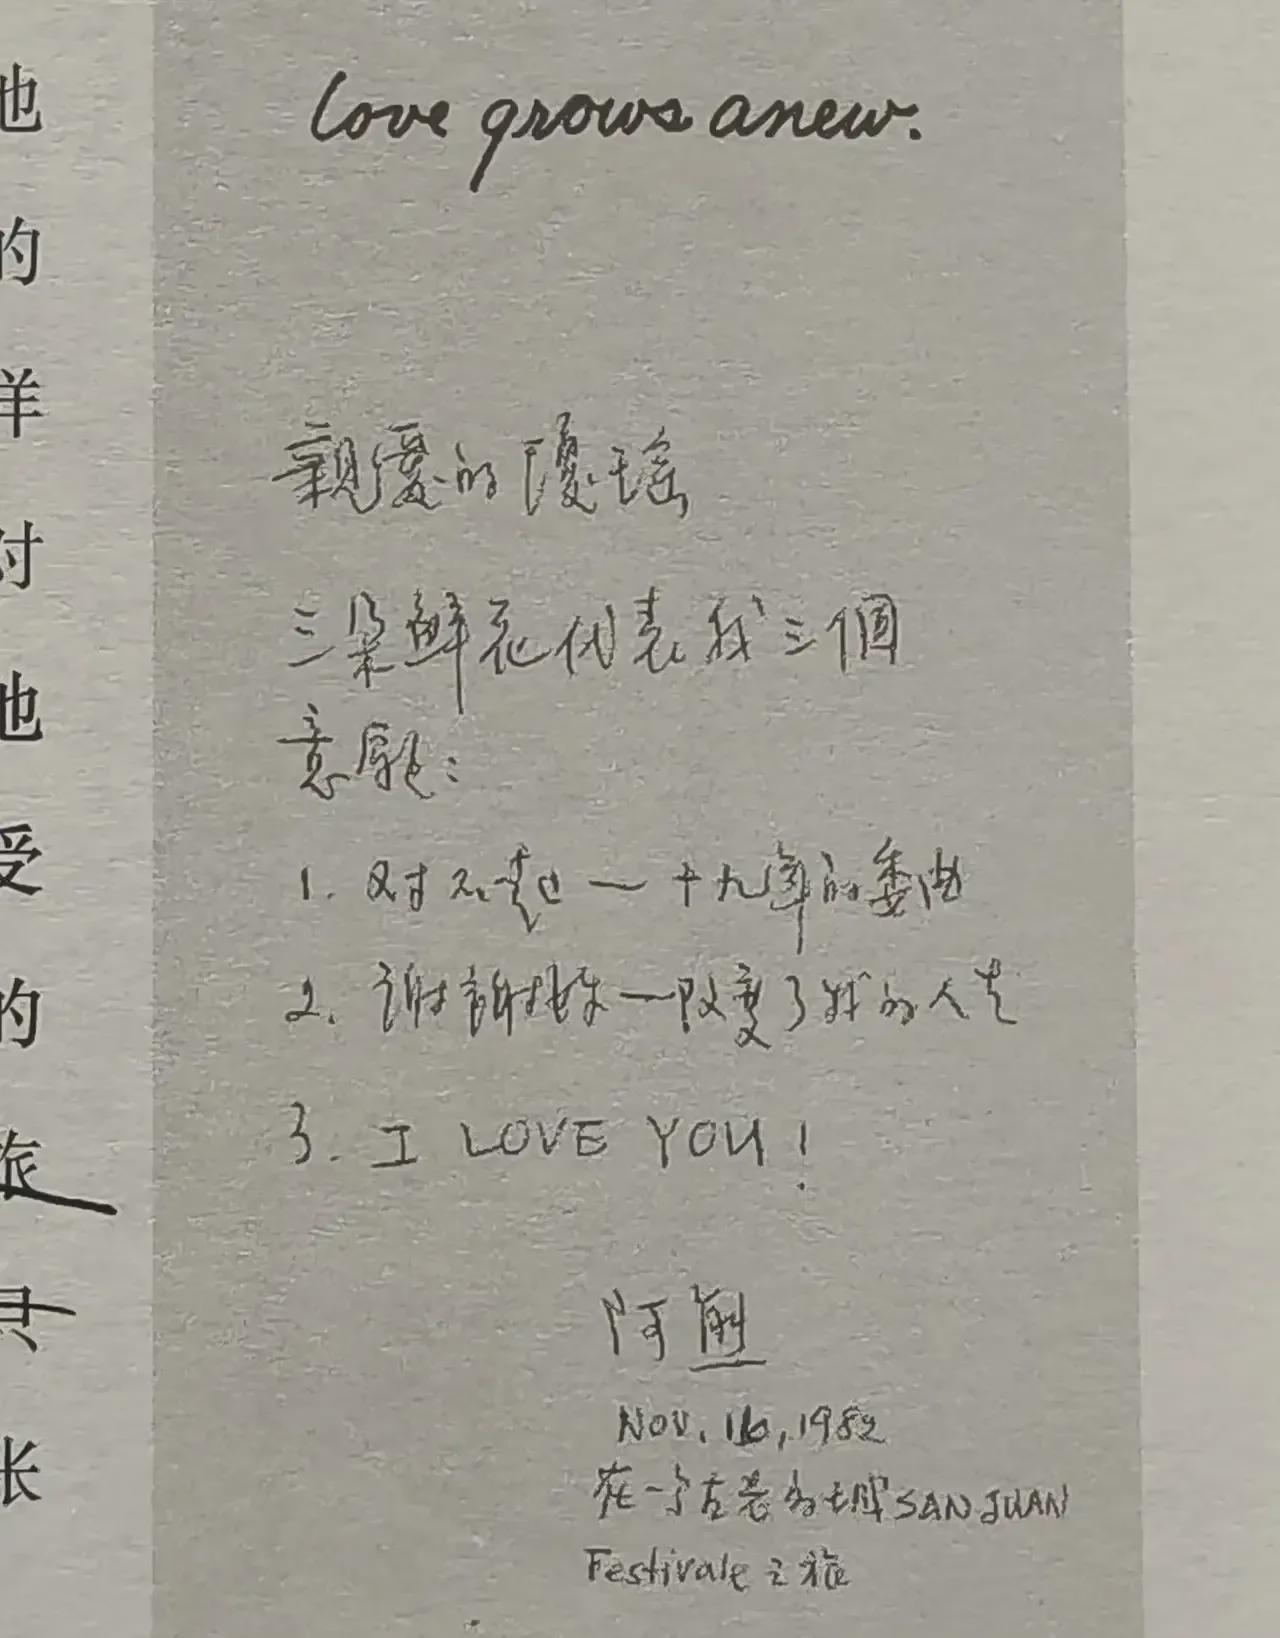 love grows anew.
親愛的瓊瑤
三朵鮮花代表我三個
意願：
1. 对不起—十九年的委曲
2. 謝謝妳—改變了我的人生
3. I LOVE YOU!
阿
NOV. 16, 1982
在一个古老的城 SAN JUAN
Festivale 之旅
他
的
样
对
她
受
的
旅
只
张